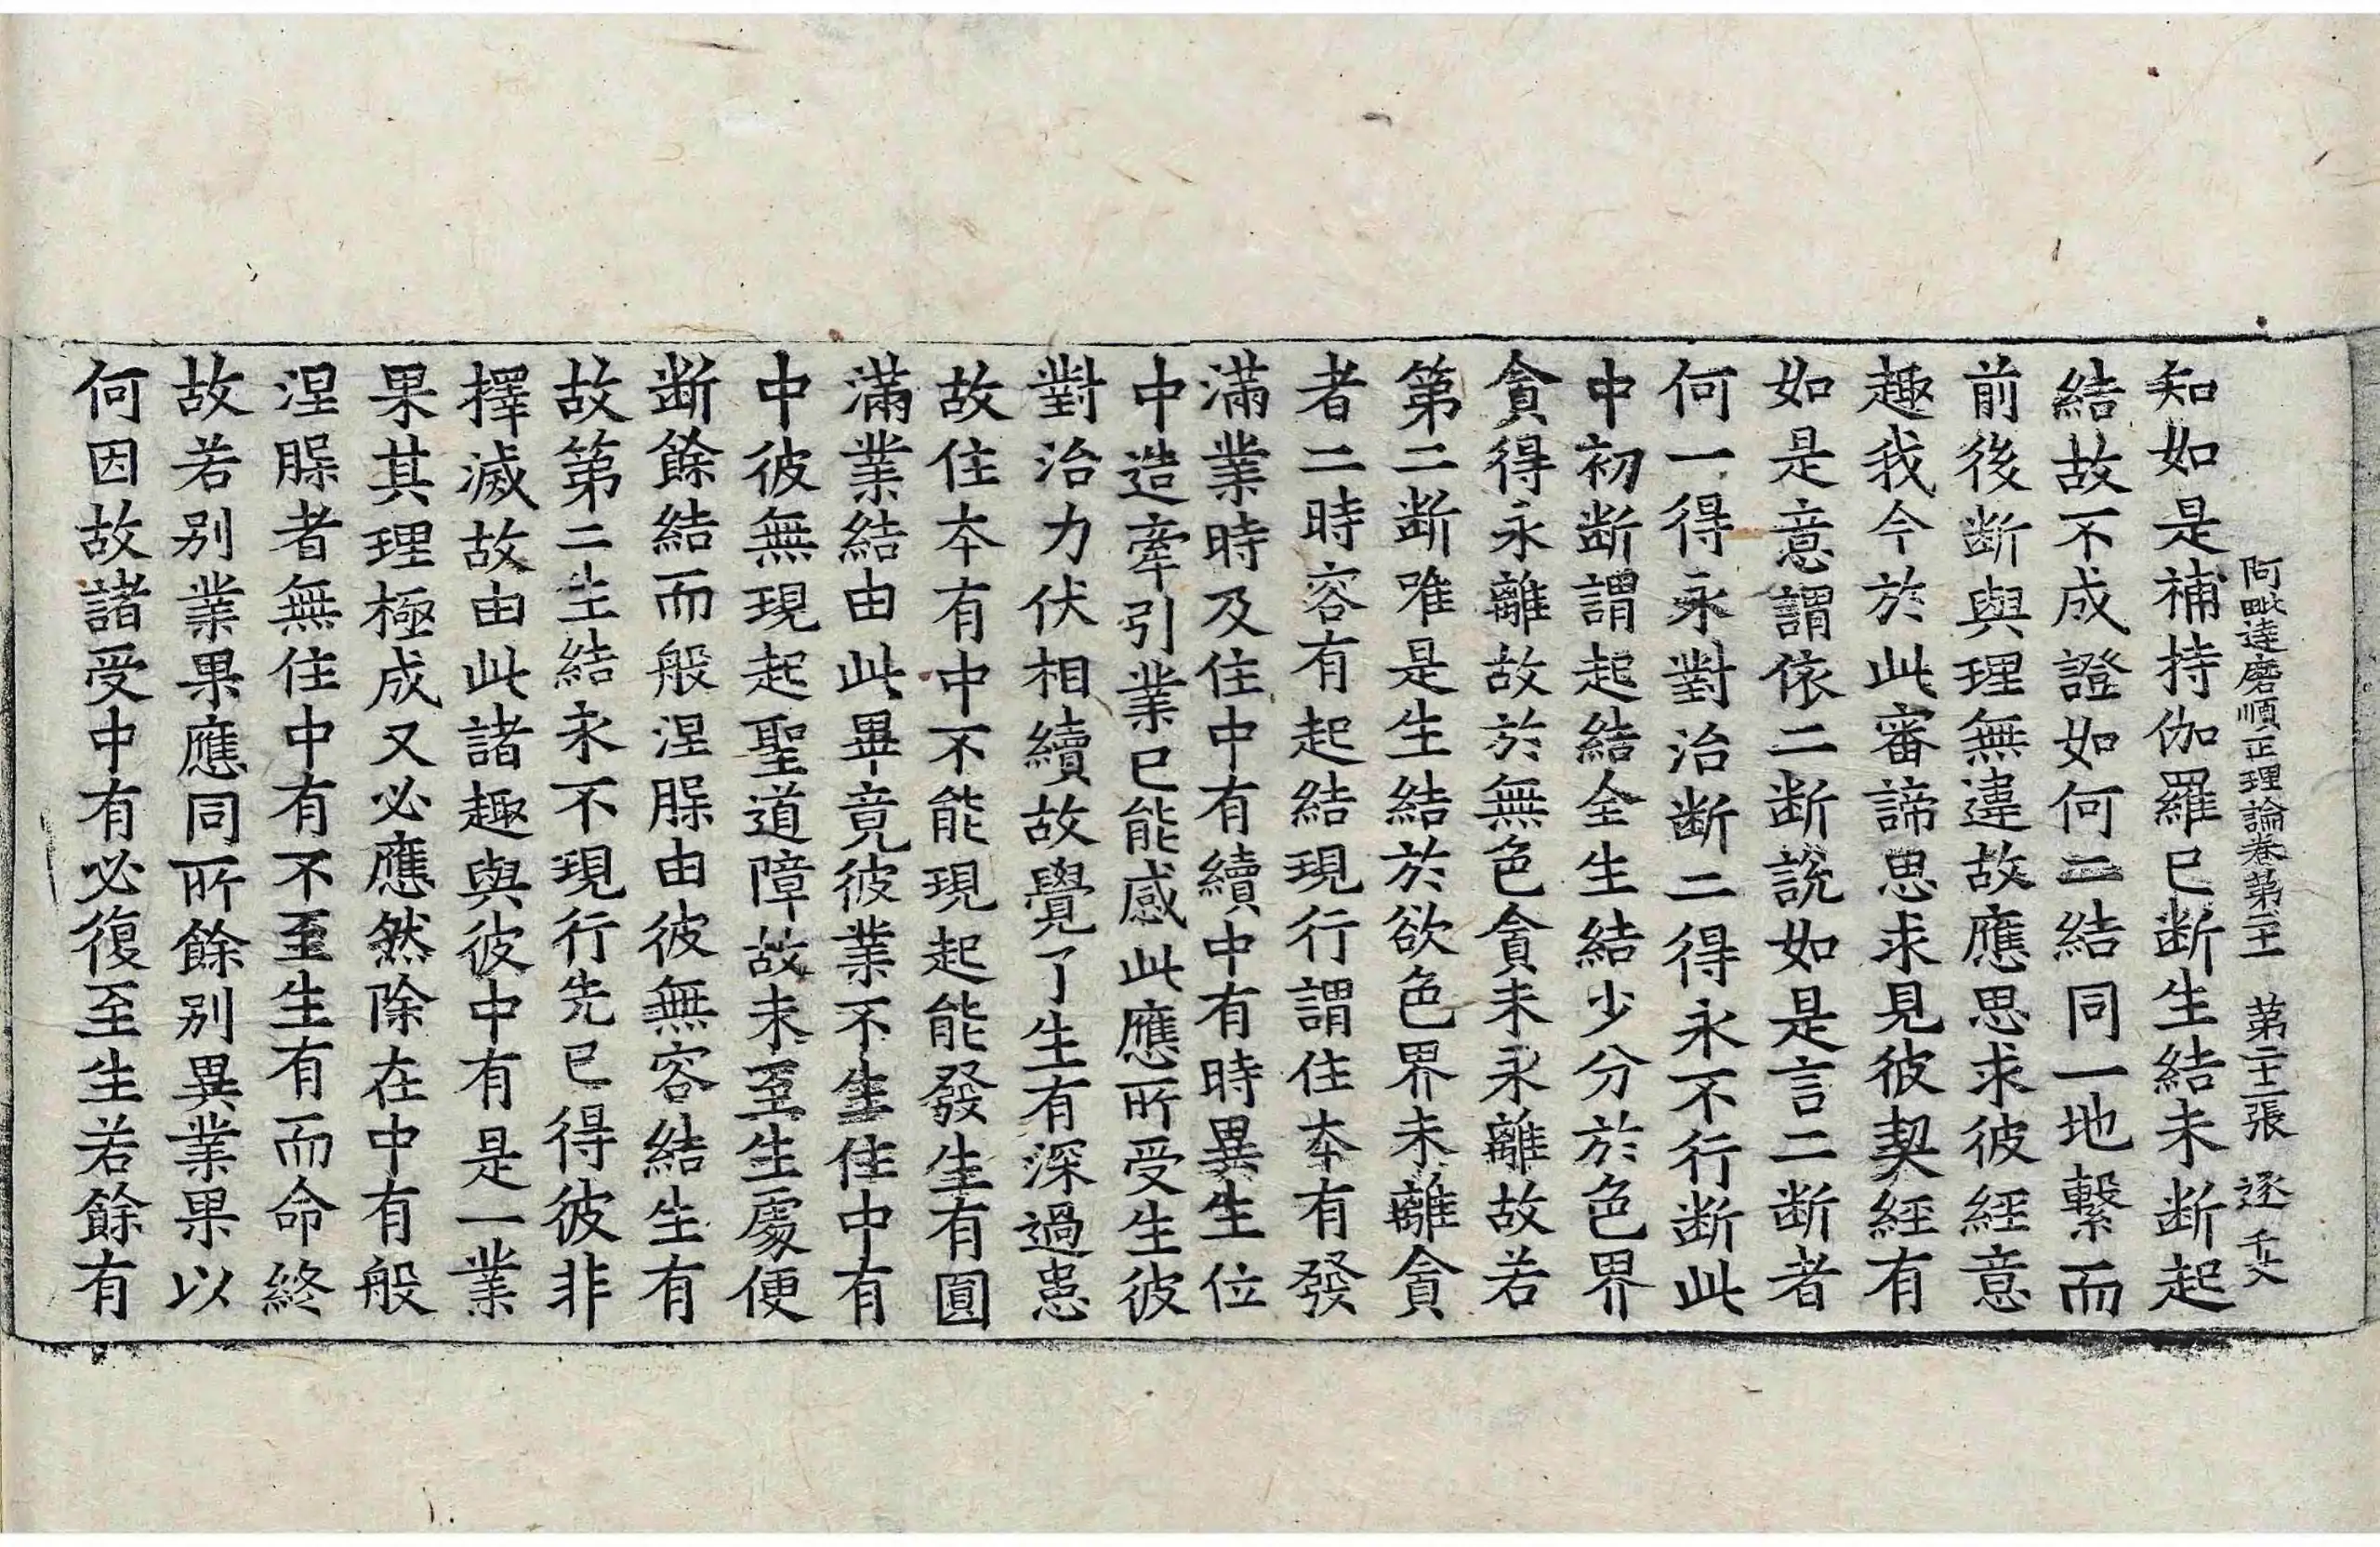 阿毗達磨順正理論卷第二十一　第二十二張　逐　千文
知如是補持伽羅已断生結未断起
結故不成證如何二結同一地繫而
前後断與理無違故應思求彼經意
趣我今於此審諦思求見彼契經有
如是意謂依二断說如是言二断者
何一得永對治断二得永不行断此
中初断謂起結全生結少分於色界
貪得永離故於無色貪未永離故若
第二断唯是生結於欲色界未離貪
者二時容有起結現行謂住本有發
滿業時及住中有續中有時異生位
中造牽引業已能感此應所受生彼
對治力伏相續故覺了生有深過患
故住本有中不能現起能發生有圓
滿業結由此畢竟彼業不生住中有
中彼無現起聖道障故未至生處便
断餘結而般涅腂由彼無容結生有
故第二生結永不現行先已得彼非
擇滅故由此諸趣與彼中有是一業
果其理極成又必應然除在中有般
涅腂者無住中有不至生有而命終
故若别業果應同所餘别異業果以
何因故諸受中有必復至生若餘有